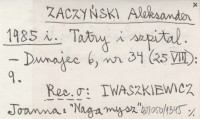 ZACZYŃSKI Aleksander
1985 i. Tatry i szpital.
– Dunajec 6, nr 34 (25 VIII):
9.
Rec. o: IWASZKIEWICZ
Joanna: "Naga mysz"
%